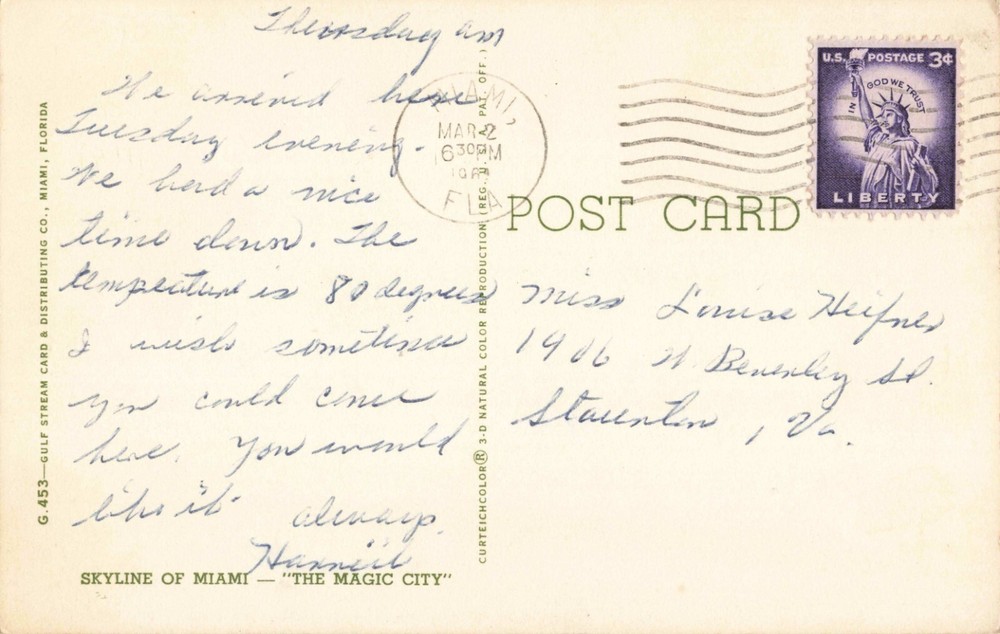 Thursday am
We arrived here
Tuesday evening.
We had a nice
time down. The
temperature is 80 degrees
I wish sometime
you could come
here. You would
like it
always
Harriett
SKYLINE OF MIAMI — "THE MAGIC CITY"
G.453—GULF STREAM CARD & DISTRIBUTING CO., MIAMI, FLORIDA
CURTEICHCOLOR® 3-D NATURAL COLOR REPRODUCTION (REG. U.S.A. PAT. OFF.)
MIAMI,
MAR 2
630 PM
FLA
U.S. POSTAGE 3¢
IN GOD WE TRUST
LIBERTY
POST CARD
Miss Louise Heifner
1906 W. Beverley St.
Staunton, Va.